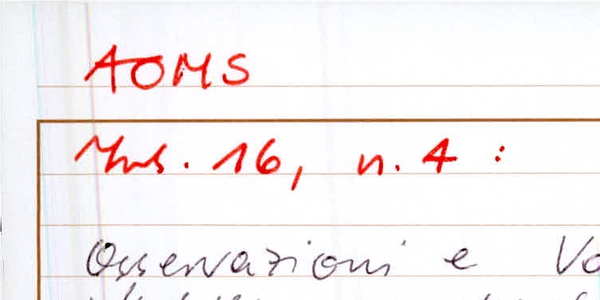 AOMS
Mus. 16, n. 4 :
Osservazioni e Vo